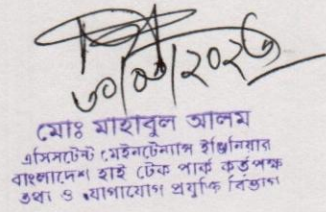 ৩০/০৬/২০২৬
মোঃ মাহাবুল আলম
এসিসটেন্ট মেইনটেন্যান্স ইঞ্জিনিয়ার
বাংলাদেশ হাই টেক পার্ক কর্তৃপক্ষ
তথ্য ও যোগাযোগ প্রযুক্তি বিভাগ